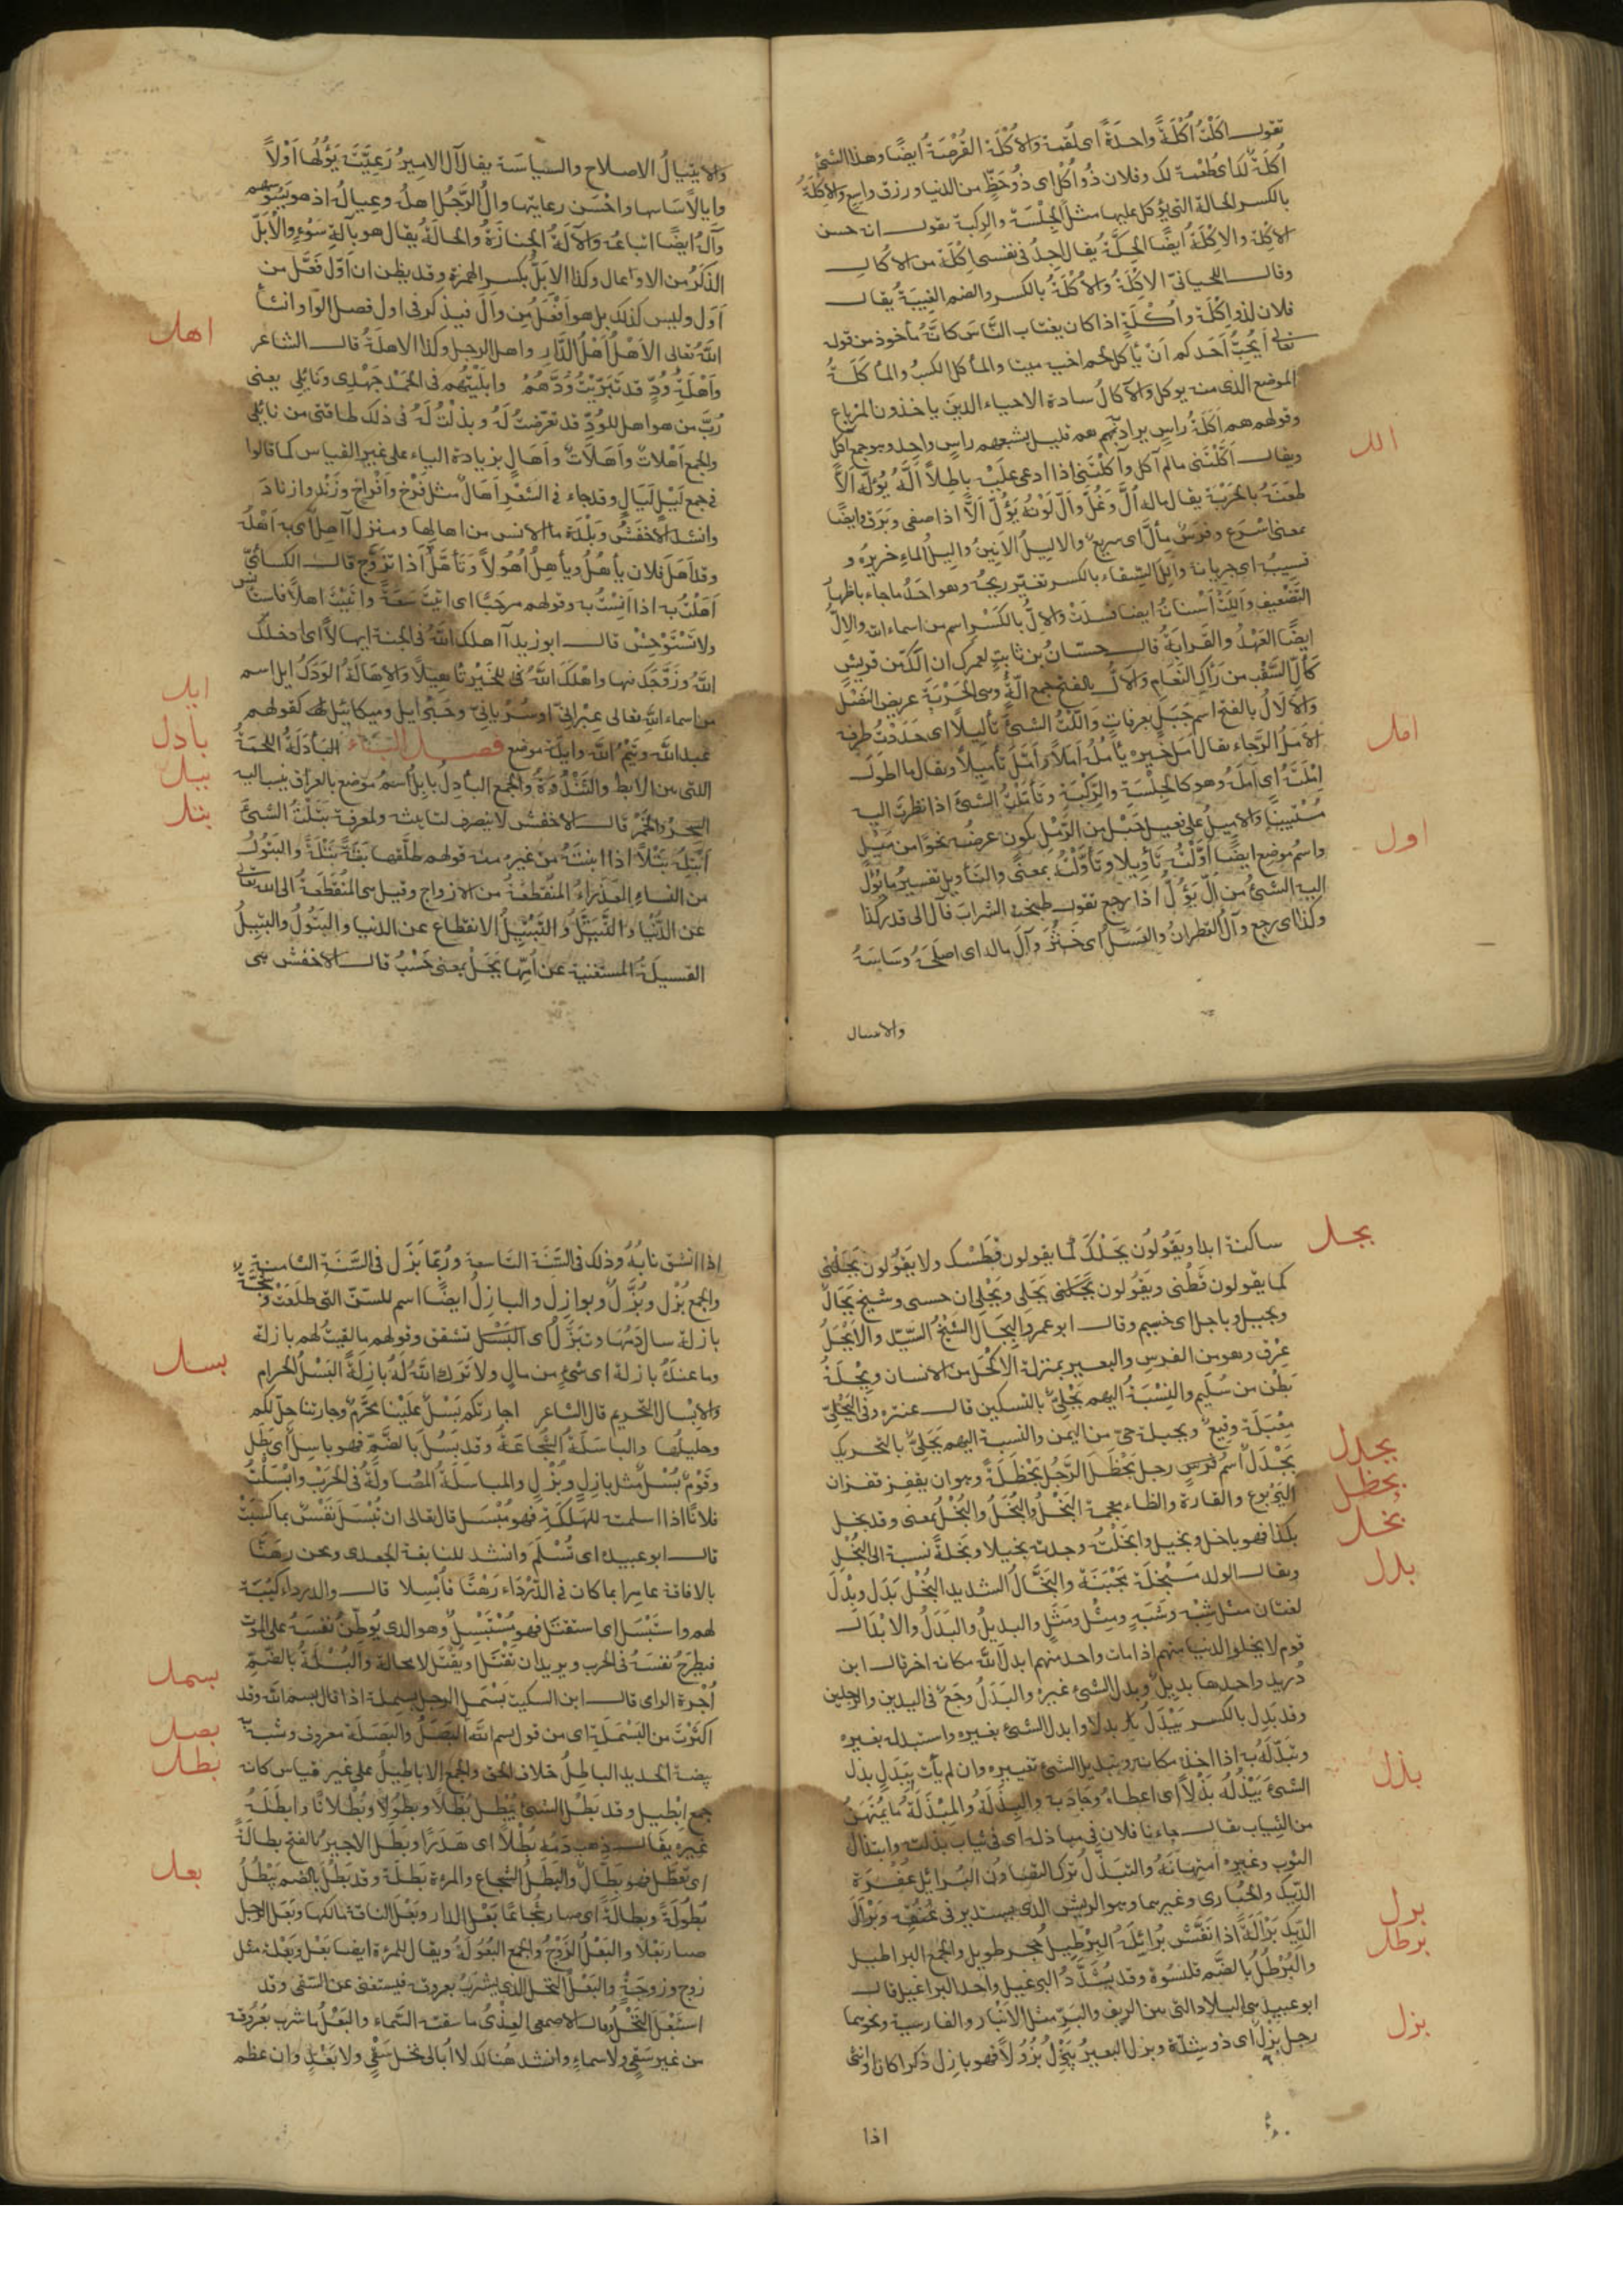 تقول اَكَلْتُ اُكْلَةً واحِدَةً اى لُقْمة وَالاُكْلَة القُرْصَةُ ايضًا وهذا الشئ
اُكْلَةٌ لك اى طُعْمة لك وفلان ذُو اُكْلٍ اى ذُو حَظٍّ من الدنيا ورزق واسع وَالاِكْلَةُ
بالكسر الحالة التى يؤكل عليها مثل الجِلْسَة والرِكبة تقول انه حسن
الاِكْلة والاِكْلَةُ ايضًا الحِكَّةُ يُقال اجِدُ فى نفسى اِكْلَة من الاُكال
وقال اللحيانىّ الاِكْلَةُ وَالاُكْلَةُ بالكسر والضم الغِيبَةُ يقال
فلان لذو اِكْلَة واُكْلَةٍ اذا كان يغتاب النَّاسَ كانَّهُ مأخوذ من قوله
تعالى اَيُحِبُّ اَحَدكم اَنْ يَأكل لحم اخيه ميتا والمأكل الكسبُ والمأكَلَةُ
الموضع الذى منه يوكل وَالآكالُ سادة الاحياء الذين ياخذون المِرْباع
وقولهم هم اَكَلَةُ راسٍ يراد بهم هم قليل يشبعهم راسٍ واحد وهو جمع آكل
ويقال اَكَّلْتَنى مالم آكل وآكَلْتَنِى اذا ادعى عَلَيْهِ باطِلاً
الل
اَلَّهُ يَؤُلّه اَلّاً
طعَنَهُ بالحَرْبَةِ يقال ماله اُلَّ وَغُلَّ وَاَلّ لَوْنُهُ يَؤُلّ اَلّاً اذا صفى وبَرَق وايضًا
بمعنى اسْرَع وفرسٌ مِأَلّ اى سريع والاَلِيلُ الاَنِينُ واَلِيلُ الماءِ خريره و
قسيبُه اى جريانه وَاَلِلَ السِّقاء بالكسر تغيّر ريحُه وهو احَدُ ماجاء باظهار
التضعيف وَاَلِلَتْ اَسْنانهُ ايضا فسدَتْ وَالاِلُّ بالكَسْر اسم من اسماء الله والاِلُّ
ايضًا العَهْدُ والقَرابَةُ قال حسّانُ بن ثابتٍ لعمرك ان اِلَّكَ من قريش
كاَلِّ السَّقْب من رَألِ النَّعَام وَالاَلُّ بالفتح جمع اَلَّة وهى الحَرْبَة عريض النَصْل
وَالاَلالُ بالفتح اسم جَبَلٍ بعرفاتٍ وَاَلَّلْتُ الشىءَ تأليلاً اى حَدَّدْتُ طرفه
امل
الاَمَلُ الرَّجاء يقال اَمَلَ خَيره يأمُلُ اَمَلاً وَاَمَّلَ تأميلاً ويقال ما اطول
اِمْلَتَهُ اى اَمَلَهُ وهو كالجِلْسَةِ والرِّكْبَةِ وتَأَمَّلْتُ الشىءَ اذا نظرتَ اليه
مُسْتَبِينًا وَالاَمِيلُ على فعيل حَبْلٌ من الرَّمْل يكون عرضُه نحوًا من مَيْلٍ
اول
واسم موضع ايضًا اَوَّلْتُهُ تَأويلا وتَأَوَّلْتُهُ بمعنًى والتأويل تفسير ما يؤل
اليه الشىءُ من آلَ يَؤُلُ اذا رجع تقول طبخت الشرابَ فآل الى قدر كذا
وكذا اى رجع وآل القَطران والعَسَل اى خَثُرَ وَآلَ ماله اى اصلَحَهُ وَسَاسَهُ
والايتيال
والاِيتيالُ الاصلاح والسياسَة يقال آل الامِيرُ رَعِيَّتَه يَؤُلُهَا اَوْلاً
وايالاً ساسها واحْسَن رعايتها والُ الرَّجُل اهلُه وعيالُه اذ هو يَسُوسُهم
وآلُه ايضًا اتباعُه وَالآلَةُ الجِنازَةُ والحالةُ يقال هو بآلةِ سَوْءٍ والاُبَّلّ
الذَكَرُ من الاوعال وكذا الاِبَلُّ بكسر الهمزة وقد يظن ان اَوّل فَعّل من
اَوَل وليس كذلك بل هو اَفْعَلُ من وَاَلَ فيذكر فى اول فصل الوَاو انشأ
اهل
اللهُ تعالى الاَهْلُ اَهْلُ الدَّارِ واهل الرجل وكذا الاهلَة قال الشاعر
وَاَهْلَةِ وُدٍّ قد تَبَرَّيْتُ وُدَّهُمْ وابلَيْتُهُم فى الحَمْد جَهْدِى وَنَائِلِى يعنى
رُبَّ من هو اهل للوُدِّ قد تعرّضتُ لَهُ وبذلْتُ لَهُ فى ذلك طاقتى من نائلى
والجمع اَهْلاتٌ وَاَهَلاَتٌ وَاَهَالٍ بزيادة الياء على غير القياس كما قالوا
فى جمع لَيْلٍ لَيَالٍ وقد جاء فى الشِّعْرِ اَهَالٌ مثل فَرْخ وَاَفْراخ وزَنْدٍ وازنادَ
وانشد الاخفَشُ وَبَلْدَة ما الانس من اهالها ومنزل آهل اى به اَهْلُه
وقد اَهَلَ فلان يأهُلُ ويأهِلُ اُهُولاً وَتَأَهَّلَ اَذا تزوَّج قال الكسائىّ
اَهِلْتُ به اذا اَنِسْتُ به وقولهم مرحبًا اى اتيتَ سَعَةً واَتَيْتَ اهلاً فاستأنس
ولا تَسْتَوْحِشْ قال ابو زيد آهلك اللهُ فى الجنة ايهالاً اى ادخلك
اللهُ وزوَّجكَ منها واهْلَكَ اللهُ فى للخَيْرِ تَأهِيلاً وَالاِهَالَةُ الوَدَكُ
ايل
ايل اسم
من اسماء الله تعالى عِبْرانِىّ او سُرْيانِىّ وجَبْرايل وميكائيل له كقولهم
بأدل
عبد الله وتَيْمُ الله وايلة موضع فصل البَاء البَأدَلَةُ اللحمَةُ
ببل
التى بين الابط والثَّنْدُوَةُ والجمع البآدِلُ بابِلُ اسمُ موضع بالعراق ينسب اليه
بتل
السِحرُ والخَمْر قال الاخفش لا ينصرف لتانيثه ولمعرفة بَتَلْتُ الشىءَ
اَبْتِلُه بَتْلاً اذا ابنتَهُ من غيره منه قولهم طلّقها بَتّةً بَتْلَةً والبَتُولُ
من النساءِ العَذْراءُ المُنْقَطعَةُ من الازواج وقيل هى المُنْقَطِعَةُ الى الله تعالى
عن الدُّنيا والتَّبَتُّلُ وَالتَّبْتِيلُ الانقطاع عن الدنيا والبَتُولُ والبَتِيلُ
الفسيلَةُ المستغنية عن اُمِّها بَجَلْ بمعنى حَسْبُ قال الاخفش هى
بجل
ساكنة ابدا ويَقُولُون بَجَلْكَ كما يقولون قَطْكَ ولا يَقُولُون بَجَلْنِى
كما يقولون قَطْنى ويَقُولون بَجَلِى وبَجْلِى ان حسبى وشيخ بَجَالٌ
وبجيل وباجل اى ضخيم وقال ابو عمرو البَجَال الشَيْخ السَّيِّد والاَبْجَلُ
عِرْق وهو من الفرس والبعير بمنزلة الاَكْحَل من الانسان وبَجْلَةُ
بَطْن من سُلَيم والنِسْبَةُ اليهم بَجْلِىّ بالتسكين قال عنترة وفى البَجْلِىّ
مِعْبَلَة وقيعٌ وبجيلة حىّ من اليمن والنسبة اليهم بَجَلِىّ بالتحريك
بجدل
بحظل
بَجْدَل اسم فرسٍ رجل بَحْظَلَ الرَّجُل بَحْظَلَةً وهو ان يقفِز قفزان
بخل
اليَرْبوع والفارة والظاء معجمة البَخْلُ والبُخَلُ والبُخْلُ بمعنى وقد بخل
بكذا فهو باخل وبخيل وابخَلْتُه وجدته بخيلا وبَخَّلَهُ نسبه الى البُخْل
بدل
ويقال الولد مَبْخَلَة مَجْبَنَة والبَخَّالُ الشديد البُخْل بَدَل وبِدْلَ
لغتان مثل شِبْه وشَبَهٍ ومِثْلٍ ومَثَلٍ والبديلُ والبَدَلُ والاَبْدَال
قوم لا يخلو الدنيا منهم اذا مات واحد منهم ابدلَ اللهُ مكانه اخر قال ابن
دُرَيد واحدها بديل وبدل الشئ غيرهُ والبَدَلُ وجَعٌ فى اليدين والرِجلين
وقد بَدِل بالكسر يَبْدَلُ بَدَلا وابدل الشئ بغيره واستبدله بغيره
بذل
وتبدّلَهُ به اذا اخذ مكانه وتبديل الشئ تغييره وان لم يأت بِبَدَلٍ بذل
الشىءَ يَبْذُلُه بَذْلاً اى اعطاهُ وجَادَ به والبِذْلَةُ والمِبْذَلَة ما يُمْتَهَنُ
من الثياب يقال جاءنا فلان فى مباذله اى فى ثياب بذلته وابتذال
الثوب وغيره امتِهانَهُ والتبَذُّل ترك التصاون البُرائِل عُفْرَة
برل
الدِّيك والحُبَارى وغيرهما وهو الريش الذى يستدير فى عُنُقِه وبَرْأَلَ
برطل
الدِّيك بَرْأَلَةً اذا نَفَّشَ بُرَائِلَهُ البِرْطِيلُ حجر طويل والجمع البراطيل
والبُرْطُلُ بالضَّم قلنسُوة وقد يُشَدَّدُ البرغيل واحد البراغيل قال
ابو عبيد هى البلاد التى بين الريف والبَرِّ مثل الاَنْبَار والقادسية ونحوهما
بزل
رجل بُزْلٍ اى ذو شِدّة وبزل البعيرُ يَبْزُلُ بُزُولاً فهو بازِل ذكرا كان او انثى
اذا
اذا انشق نابُهُ وذلك فى السَّنَة التاسعة ورُبّما بَزَل فى السَّنَة الثامنة
والجمع بُزْل وبُزَّلٌ وبوازِل والبازِلُ ايضًا اسم للسنّ التى طلَعَتْ
بازلة سال دَمُهَا وتبَزَّل اى تشقق وقولهم مالقيتُ لهم بازلة
بسل
وما عندَهُ بازلة اى شئ من مالٍ ولا تَرك اللهُ لَهُ بازِلَةً البَسْلُ الحرام
وَالاِبْسال التحريم قال الشاعر اجارتكم بَسْلٌ عَلَيْنا محَرَّمٌ وجارتنا حِلّ لكم
وحليلُها والباسَلَةُ الشجَاعَةُ وقد بَسُلَ بالضَّمّ فهو باسِلٌ اى بَطَل
وقَوْم بُسْلٌ مثل بازِلٍ وبُزْلٍ والمباسلَةُ المُصَاوَلَةُ فى الحَرْبِ وابْسَلْتُ
فلانًا اذا اسلمته للهَلَكَةِ فهو مُبْسَل قال تعالى ان تُبْسَلَ نَفْسٌ بما كَسَبَتْ
قال ابو عبيدة اى تُسْلَم وانشد للنابغة الجعدى ونحن رهَنّا
بالافاقة عامِرا بما كان فى الدَّرْدَاءِ رَهْنًا فاُبْسِلا قال والدرداء كتيبَة
لهم واستَبْسَل اى استقتل فهو مُسْتَبْسِلٌ وهو الذى يُوطِّنُ نفسَهُ على الموت
فيطرَحُ نفسَهُ فى الحرب ويريد ان يَقْتُل او يُقْتَل لا محالة والبُسْلَةُ بالضّمّ
بسمل
اُجْرة الراى قال ابن السكيت بَسْمَل الرجل بسملة اذا قال بسم الله وقد
بصل
اكثَرْتَ من البَسْمَلَةِ اى من قول بسم الله البَصَلُ والبَصَلَة معروف وشبه به
بطل
بيضة الحديد الباطِلُ خلاف الحق والجمع الاباطِيلُ على غير قياس كانه
جمع اِبْطِيل وقد بَطَلَ الشىءُ يَبْطُلُ بُطْلاً وبُطُولاً وبُطْلانًا وابطَلَهُ
غيره يقال ذهب دَمُه بُطْلاً اى هَدَرًا وبَطَل الاجير بالفتح بطَالَةً
بعل
اى تَعَطَّل فهو بَطّال والبَطَلُ الشجاع والمرءة بَطَلَة وقد بَطُلَ بالضم يَبْطُلُ
بُطُولَةً وبَطَالَةً اى صار شُجاعًا بَعْل الدار وبَعْل الناقة مالكها وبَعَل الرجل
صار بَعْلا والبَعْلُ الزَّوْجُ والجمع البُعُولَةُ ويقال للمرءة ايضا بَعْل وبَعْلة مثل
زوج وزوجَةٌ والبَعْلُ النخل الذى يشرَبُ بعروقه فيستغنى عن السّقى وقد
استَبْعَلَ النَّخْلُ وقال الاصمعى العِذْىُ ما سقته السَّماء والبَعْلُ ما شرب بعُرُوقه
من غير سَقْىٍ ولا سماءٍ وانشد هُنالك لا اُبالى نخل سَقْىٍ ولا بَعْلٍ وان عظم